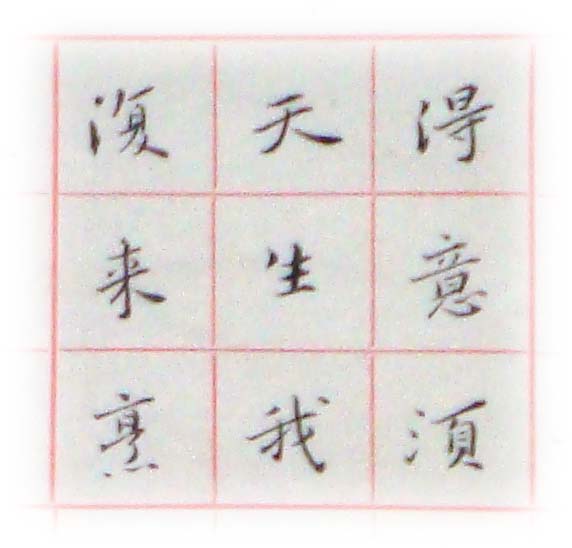 得意須
天生我
復来烹